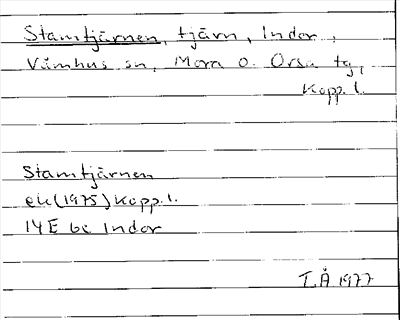 Stamtjärnen, tjärn, Indor,
Våmhus sn, Mora o. Orsa tg,
Kopp. l.
Stamtjärnen
ek (1975) Kopp. l.
14E 6c Indor
T.Å 1977